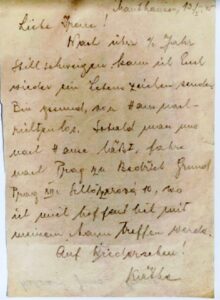 Mauthausen, 13/5. 45
Liebe Irene!
Nach über ½ Jahr
Stillschweigen kann ich Euch
wieder ein Lebenszeichen senden.
Bin gesund, von Hann nach-
richtenlos. Sobald man uns
nach Hause läßt, fahre
nach Prag zu Bedřich Grund
Prag XII, 10, wo
ich mich hoffentlich mit
meinem Mann treffen werde.
Auf Wiedersehen!
Käthe